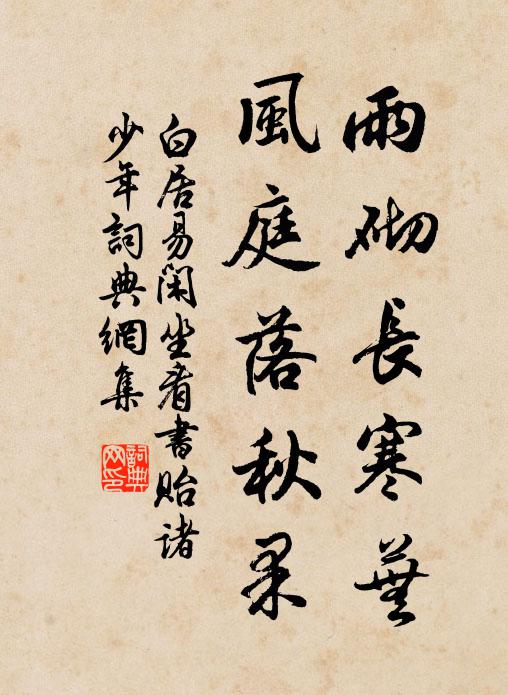 雨砌長寒蕪
風庭落秋果
白居易閑坐看書貽諸
少年詞典網集
詞典网印